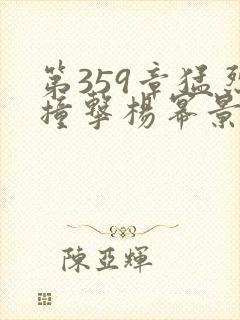 第359章猛烈
撞擊楊冪景
陳亞輝